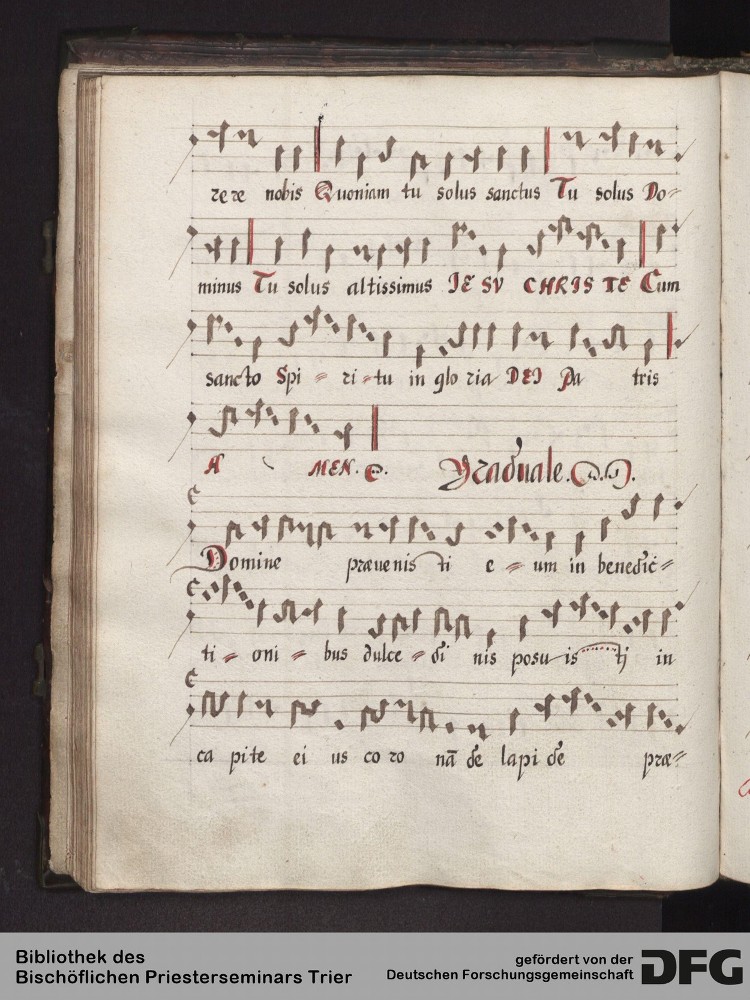 rere nobis Quoniam tu solus sanctus Tu solus Do=
minus Tu solus altissimus IESV CHRISTE Cum
sancto Spi = ri = tu in glo ria DEI Pa tris
A MEN.
Graduale.
Domine præuenis ti e = um in benedic=
ti = oni = bus dulce = di nis posu is tj in
ca pite ei us co ro nā de lapi de præ=
Bibliothek des
Bischöflichen Priesterseminars Trier
gefördert von der
Deutschen Forschungsgemeinschaft DFG